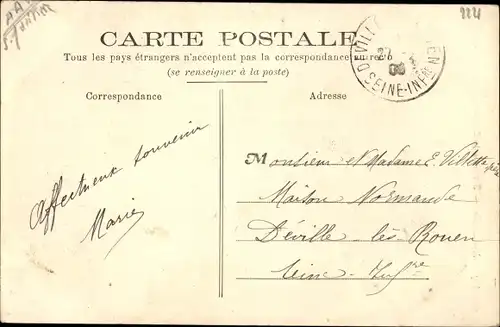 AA
9221
CARTE POSTALE
Tous les pays étrangers n'acceptent pas la correspondance au recto
(se renseigner à la poste)
DÉVILLE ROUEN
SEINE-INFRE
Correspondance
Adresse
Affectueux souvenir
Marie
Monsieur et Madame E. Villette
Maison Normande
Déville lès Rouen
Seine-Infre